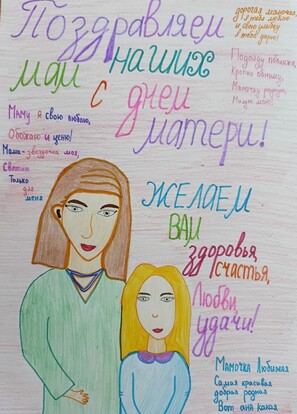 Поздравляем
наших
мам
с днем
матери!
дорогая мамочка,
я тебя люблю
Подойду поближе,
Крепко обниму,
Мамочку родную
Маму я свою люблю,
Обожаю и ценю!
Мама - звездочка моя,
Светит
Только
для
меня
Желаем
Вам
здоровья,
счастья,
Любви,
удачи!
Мамочка Любимая
Самая красивая
добрая родная
Вот она какая